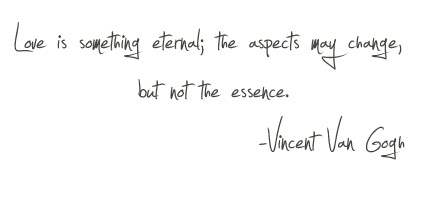 Love is something eternal; the aspects may change,
but not the essence.
-Vincent Van Gogh